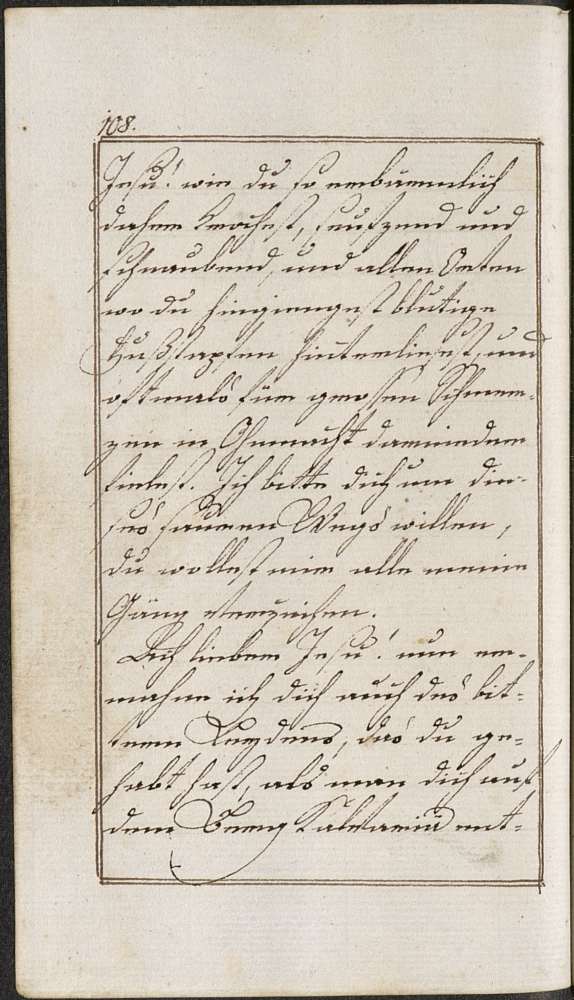 108.
Jesu! wie du so erbärmlich
daher krochest, seufzend und
schnaubend, und allen Orten
wo du hingiengest blutige
Fußstapfen hinterließest, und
oftmals für grossen Schmer-
zen in Ohnmacht darnieder
fielest. Ich bitte dich um die-
ses sauren Wegs willen,
du wollest mir alle meine
Gäng verzeihen.
Ach lieber Jesu! nun er-
mahne ich dich auch des bit-
tern Leydens, das du ge-
habt hast, als man dich auf
dem Berg Kalvariä ent-